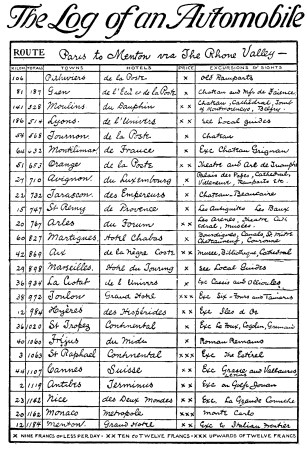 The Log of an Automobile
ROUTE Paris to Menton via The Rhone Valley—
KILOM TOTAL TOWNS HOTELS PRICE EXCURSIONS OR SIGHTS
106 de la Poste x Old Ramparts
81 187 Gien de l'Ecu et de la Poste x Chateau and Mfs de Faience
141 328 Moulins du Dauphin x x Chateau, Cathedral, Tomb
of Montmorency, Belfry.
186 514 Lyons. de l'Univers x x See Local guides
54 568 Tournon de la Poste x Chateau
64 632 Montelimar de France x Exc Chateau Grignan
51 655 Orange de la Poste x x Theatre and Arc de Triomphe
27 710 Avignon. du Luxembourg x Palais des Papes, Cathedral,
Villeneuve, Ramparts Etc.
22 732 Tarascon des Empereurs x Chateau, Beaucaire
15 747 St Remy de Provence x Les Antiquites Les Baux
20 767 Arles du Forum x x Les Arenes, Theatre Cath
edral, Musees.
60 827 Martigues. Hotel Chabas x Bourdigues, Canals, St Mitre
Chateauneuf, Couronne
42 869 Aix de la Nègre Coste x x Musee, Bibliotheque, Cathedral
29 898 Marseilles. Hotel du Touring x see Local Guides
36 934 La Ciotat de l'Univers x Exc Cassis and Ollioules
38 972 Toulon Grand Hotel x x Exc Six-Fours and Tamaris
12 984 Hyères des Hesperides x x Exc Iles d'Or
36 1020 St Tropez Continental x Exc Le Foux, Cogolin, Grimaud
40 1060 Fréjus du Midi x Roman Remains
3 1063 St Raphael Continental x x x Exc The Esterel
44 1107 Cannes Suisse x x Exc Grasse and Vallauris
2 1119 Antibes Terminus x x Exc Golfe Jouan
23 1142 Nice des Deux Mondes x x Exc La Grande Corniche
20 1162 Monaco Metropole x x x Monte Carlo
12 1184 Menton Grand Hotel x x Exc to Italian Frontier
X NINE FRANCS OR LESS PER DAY - XX TEN TO TWELVE FRANCS - XXX UPWARDS OF TWELVE FRANCS